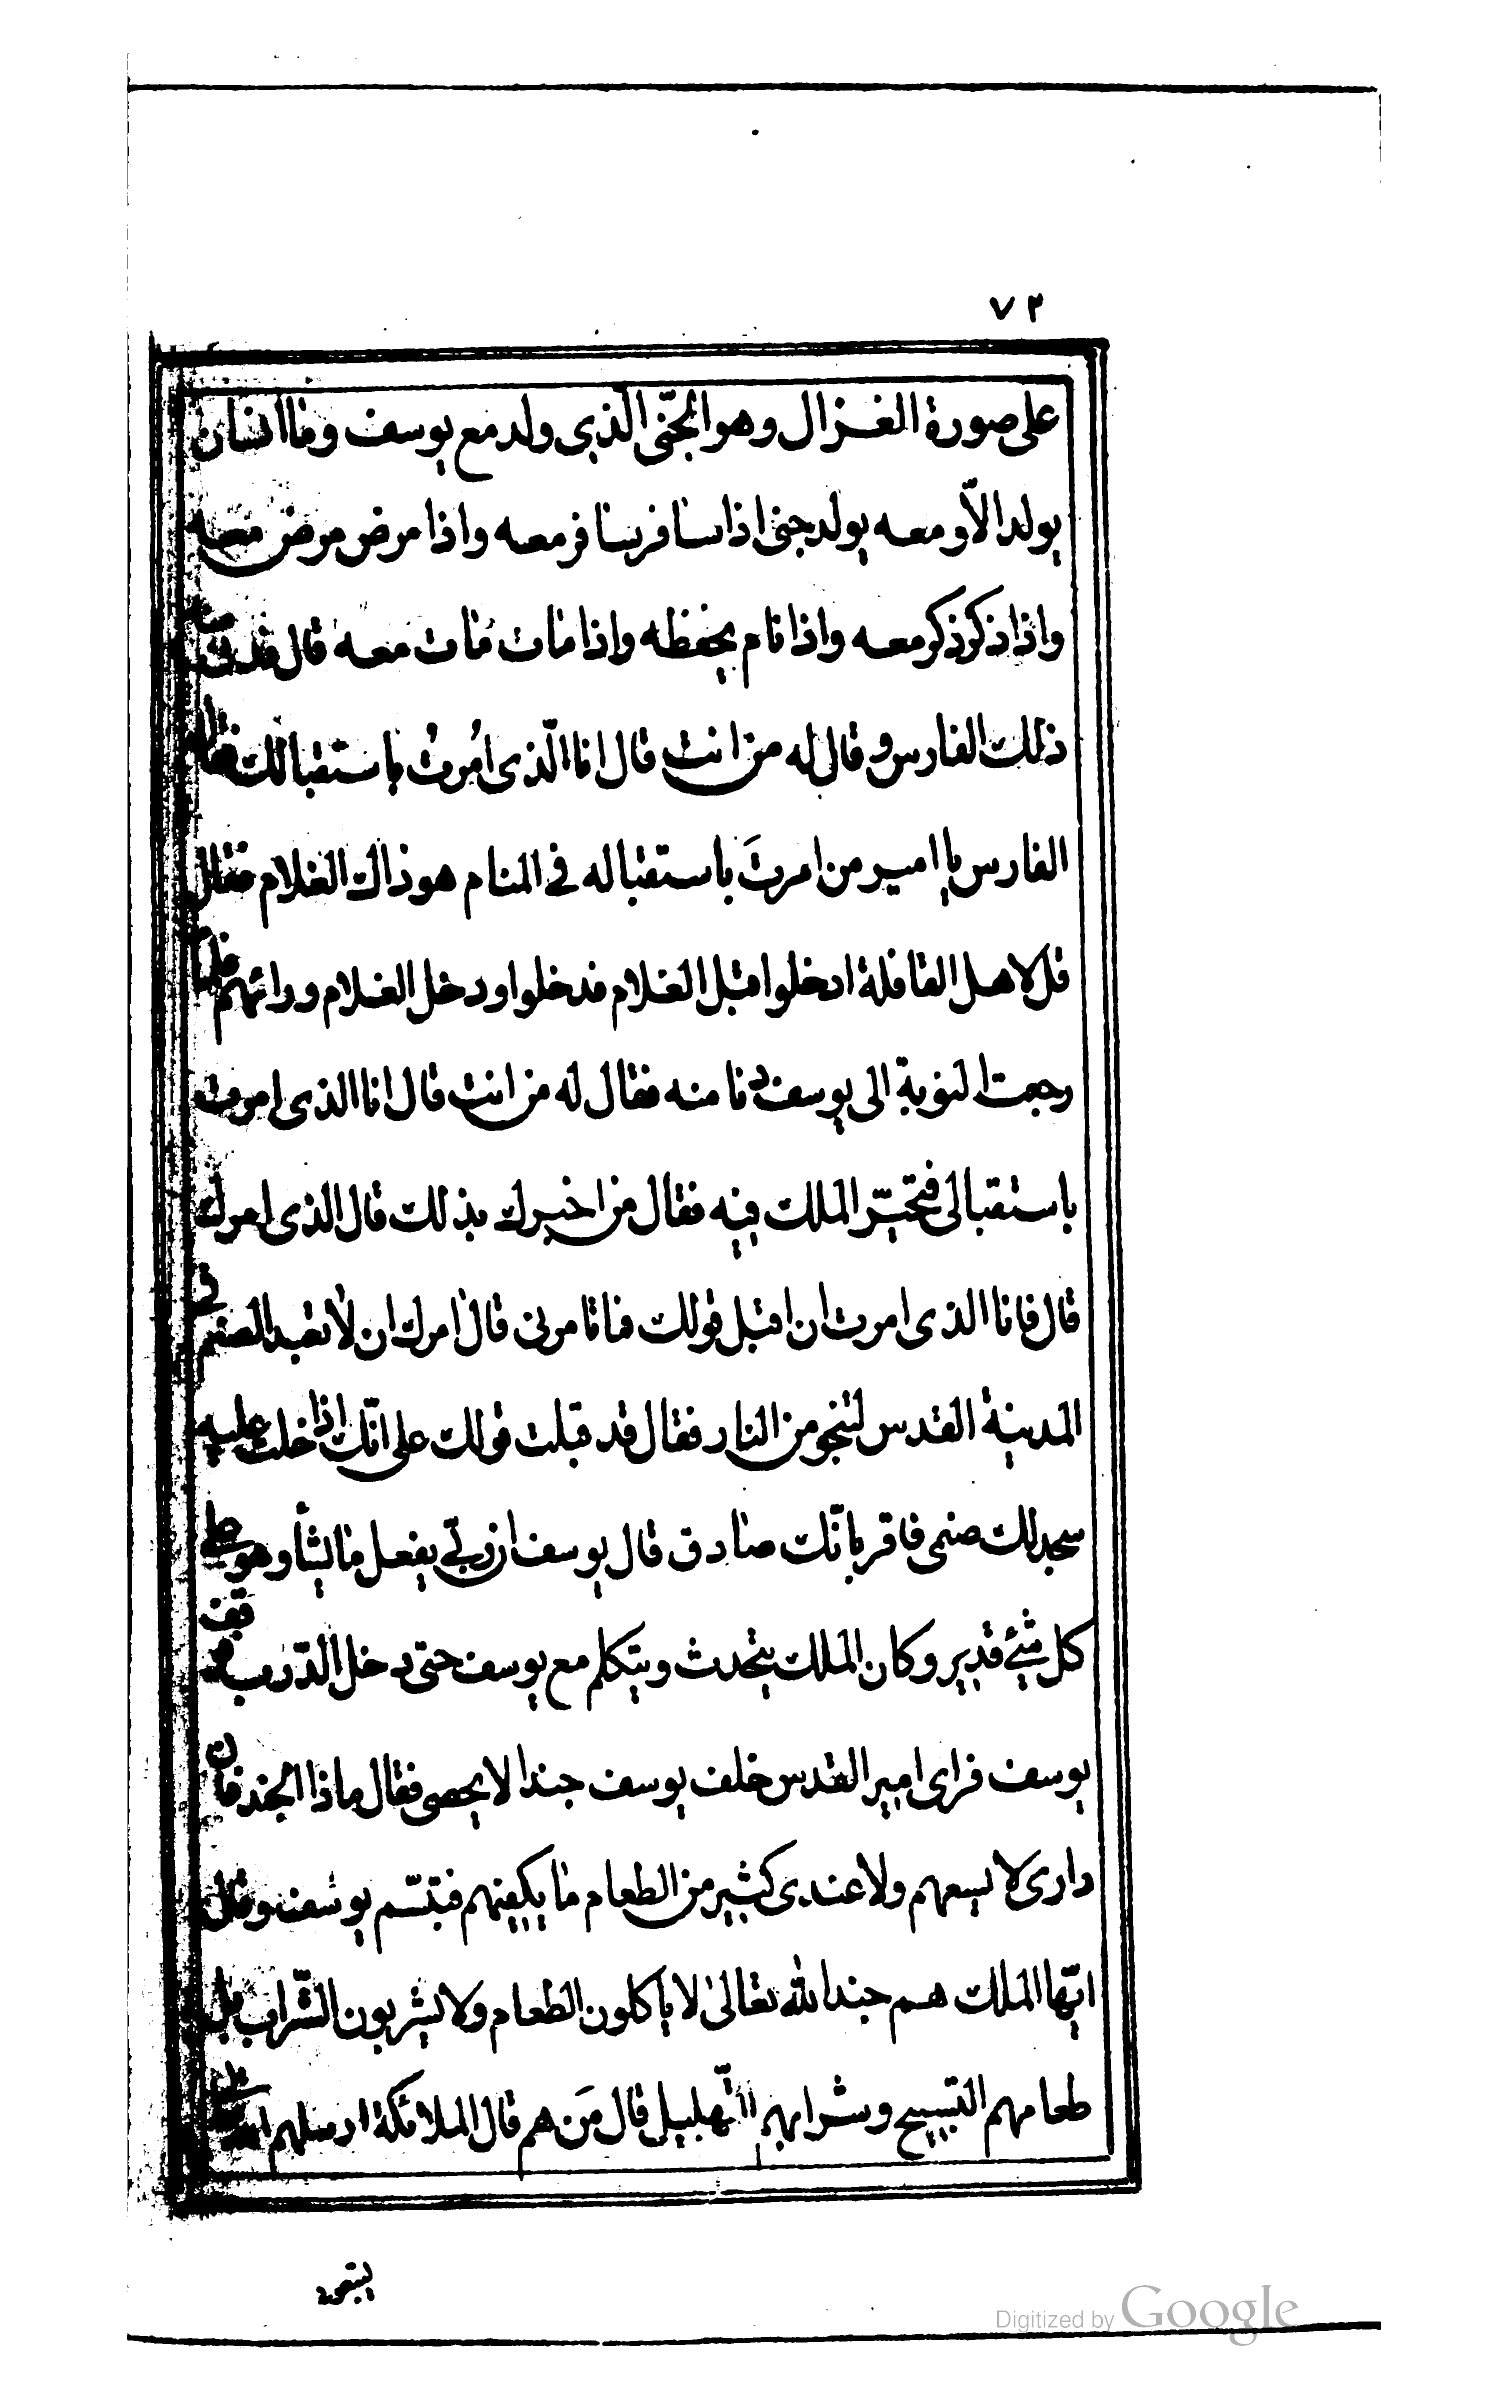 ٧٢
على صورة الغزال وهو الجنّى الّذي ولد مع يوسف وما انسان
يولد الاّ ومعه يولد جنى اذا سافر يسافر معه واذا مرض مرض معه
واذا ذكر ذكر معه واذا نام يحفظه واذا مات مات معه قال
ذلك الفارس وقال له من انت قال انا الّذى اُمرتُ باستقبالك فقال
الفارس يا امير من امرتَ باستقباله فى المنام هو ذاك الغلام فقال
قل لاهل القافلة ادخلوا قبل الغلام فدخلوا ودخل الغلام ورائهم فلما
رجعت النوبة الى يوسف دنا منه فقال له من انت قال انا الذى امرت
باستقبالى فتحيّر الملك فيه فقال من اخبرك بذلك قال الذى امرك
قال فانا الذى امرت ان اقبل قولك فما تامرنى قال امرك ان لا تعبد الصنم فى
المدينة القدس لتنجو من النار فقال قد قبلت قولك على انّك اذا دخلت عليه
سجد لك صنمى فاقر بانّك صادق قال يوسف ان ربّي يفعل ما يشأ وهو على
كل شئ قدير وكان الملك يتحدث ويتكلم مع يوسف حتى دخل الدّرب فوقف
يوسف فراى امير القدس خلف يوسف جندا لا يحصى فقال ماذا الجند فان
دارى لا يسعهم ولا عندى كثير من الطعام ما يكفيهم فتبسّم يوسف وقال
ايّها الملك هم جند الله تعالىٰ لا ياكلون الطعام ولا يشربون الشّراب بل
طعامهم التسبيح وشرابهم التّهليل قال مَن هم قال الملائكة ارسلهم الله
Digitized by Google